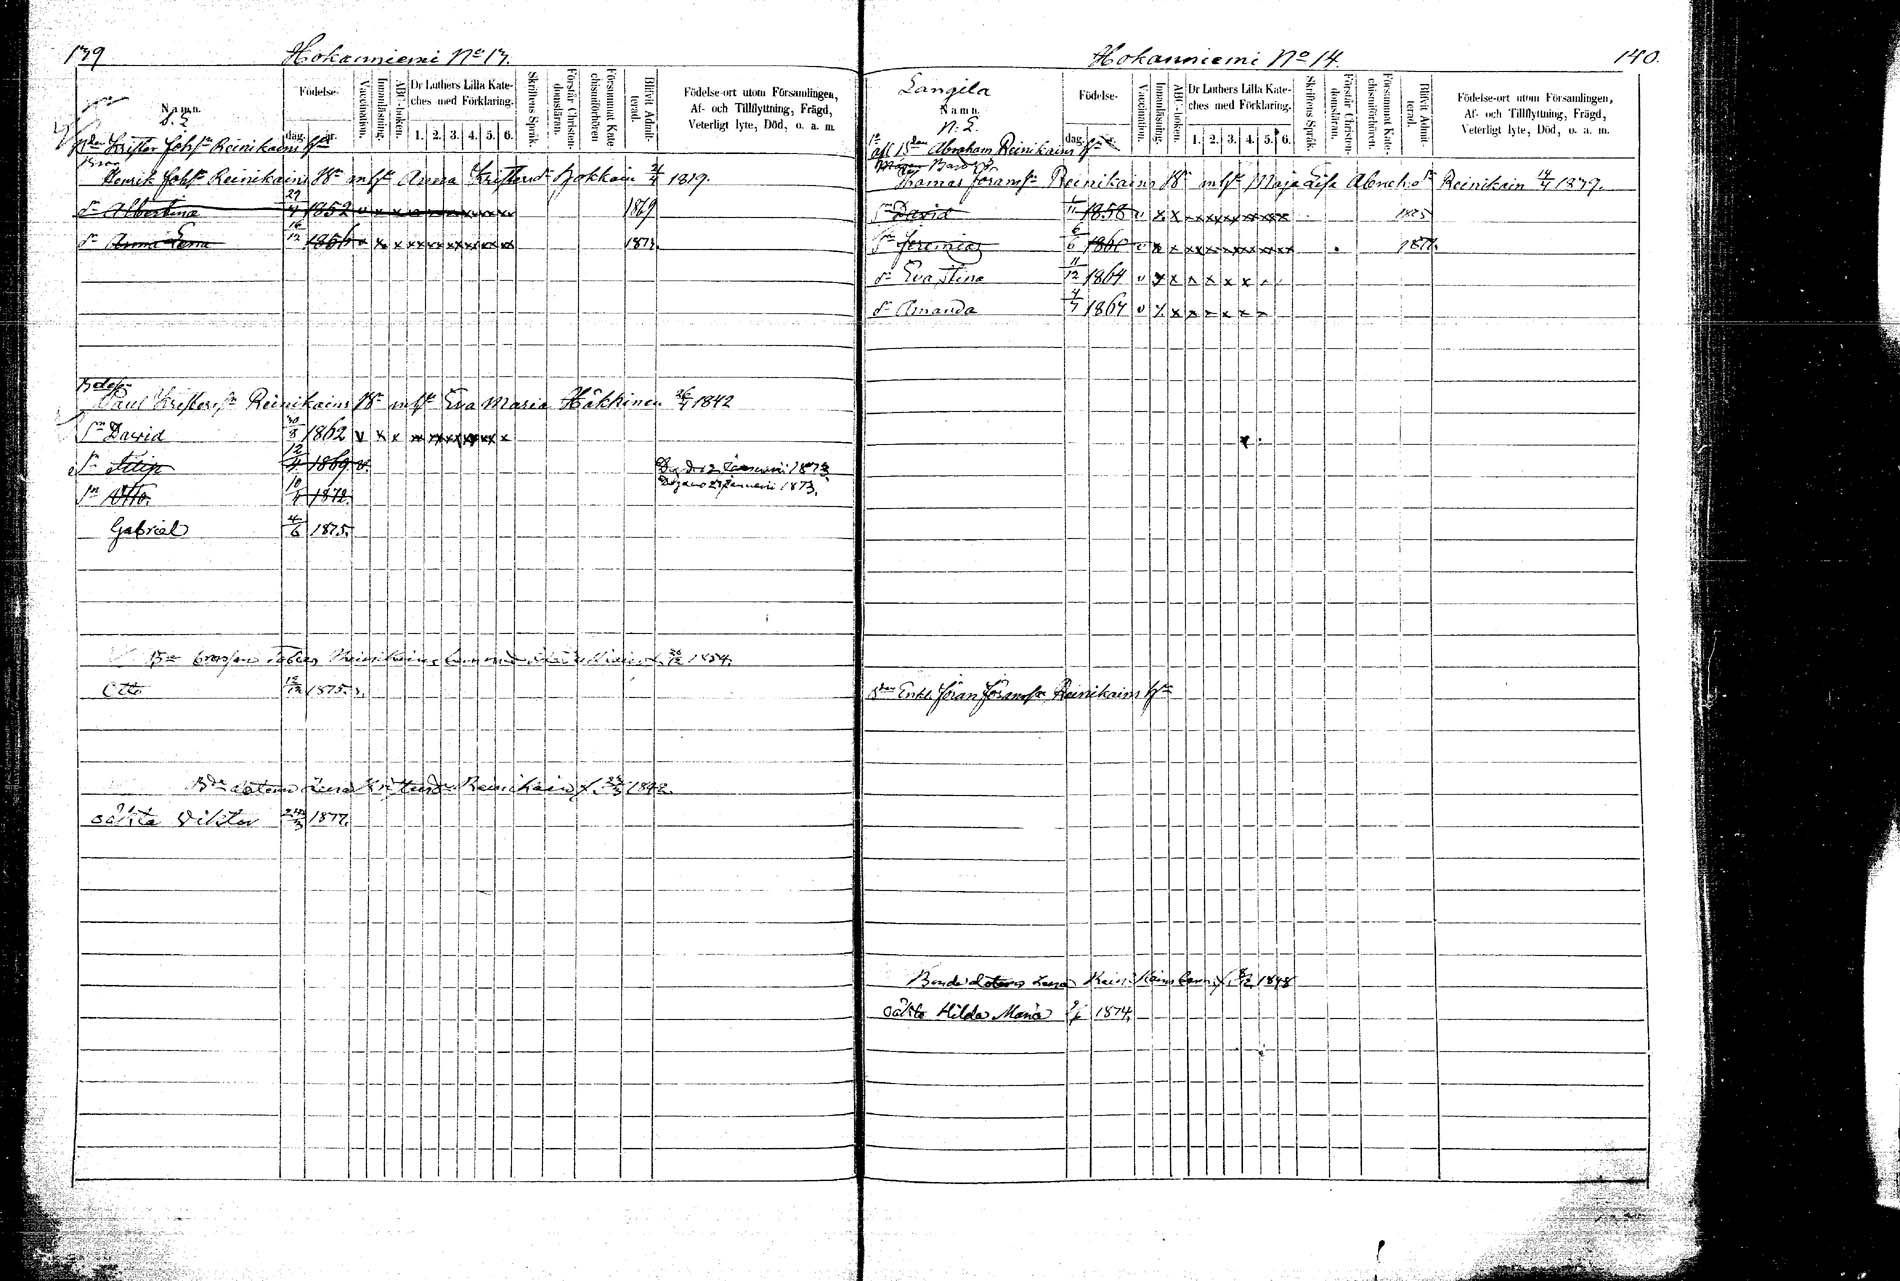 139
Hokanniemi No 17.
Namn.
S. L.
Födelse-
dag. år.
Vaccination.
Innanläsning.
ABC-boken.
Dr Luthers Lilla Kate-
ches med Förklaring.
1. 2. 3. 4. 5. 6.
Skriftens Språk.
Förstår Christen-
domsläran.
Försummat Kate
chismiförhören
Blifvit Admit-
terad.
Födelse-ort utom Församlingen,
Af- och Tillflyttning, Frägd,
Veterligt lyte, Död, o. a. m.
Bden Krister Johsn Reinikains
Bror
Henrik Johsn Reinikains Bn m hst Anna Kristersdr Hokkain 2/4 1819.
dr Albertina 29/4 1852 v x x x x x x x x x 1869
dr Anna Lena 16/12 1856 v x x x x x x x x x 1873.
Bdes
Paul Kristersn Reinikains Bn m hst Eva Maria Häkkinen 26/4 1842
Sn David 30/8 1862 v x x x x x x x x x
Sn Filip 12/4 1869 v. Död den 2 Januari 1873
Sn Otto. 10/8 1872. 27 Januari 1873.
Gabriel 4/6 1875.
Bn brorson Tobias Reinikains 20/12 1854.
Otto 15/12 1875. v.
Bde dotern Lena Kristersdr Reinikain f. 23/3 1842.
oäkta Viktor 1877.
Hokanniemi No 14.
140.
Langila
Namn.
N. L.
Födelse-
dag. år.
Vaccination.
Innanläsning.
ABC-boken.
Dr Luthers Lilla Kate-
ches med Förklaring.
1. 2. 3. 4. 5. 6.
Skriftens Språk.
Förstår Christen-
domsläran.
Försummat Kate-
chismiförhören.
Blifvit Admit-
terad.
Födelse-ort utom Församlingen,
Af- och Tillflyttning, Frägd,
Veterligt lyte, Död, o. a. m.
afl Bden Abraham Reinikains
Thomas Göransn Reinikains Bn m hst Maja Lisa Abrehsdr Reinikain 14/4 1829.
Sn David 1858 v x x x x x x x x 1875
Sn Jeremias 6/6 1861 v x x x x x x x x x 1877.
dr Eva Stina 11/12 1864 v x x x x x x
dr Amanda 4/7 1867 v x x x x x x
Bden Enkl. Göran Göransn Reinikains
Bonde dotern Lena Reinikains barn f. 8/12 1848
oäkta Hilda Maria 9/6 1874.